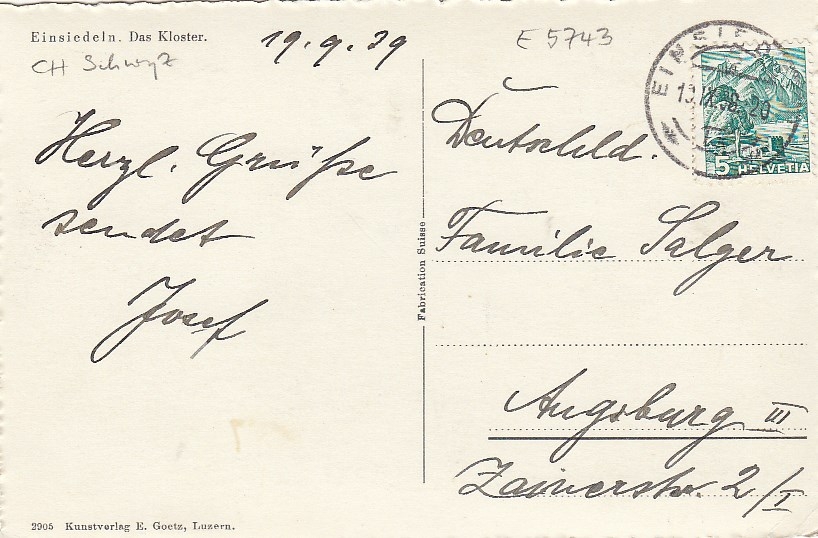 Einsiedeln. Das Kloster.
19.9.39
E 5743
CH Schwyz
Herzl. Grüße
sendet
Josef
Fabrication Suisse
5 HELVETIA
Deutschld.
Familie Salger
Augsburg III
Zainerstr. 2/I
2905 Kunstverlag E. Goetz, Luzern.